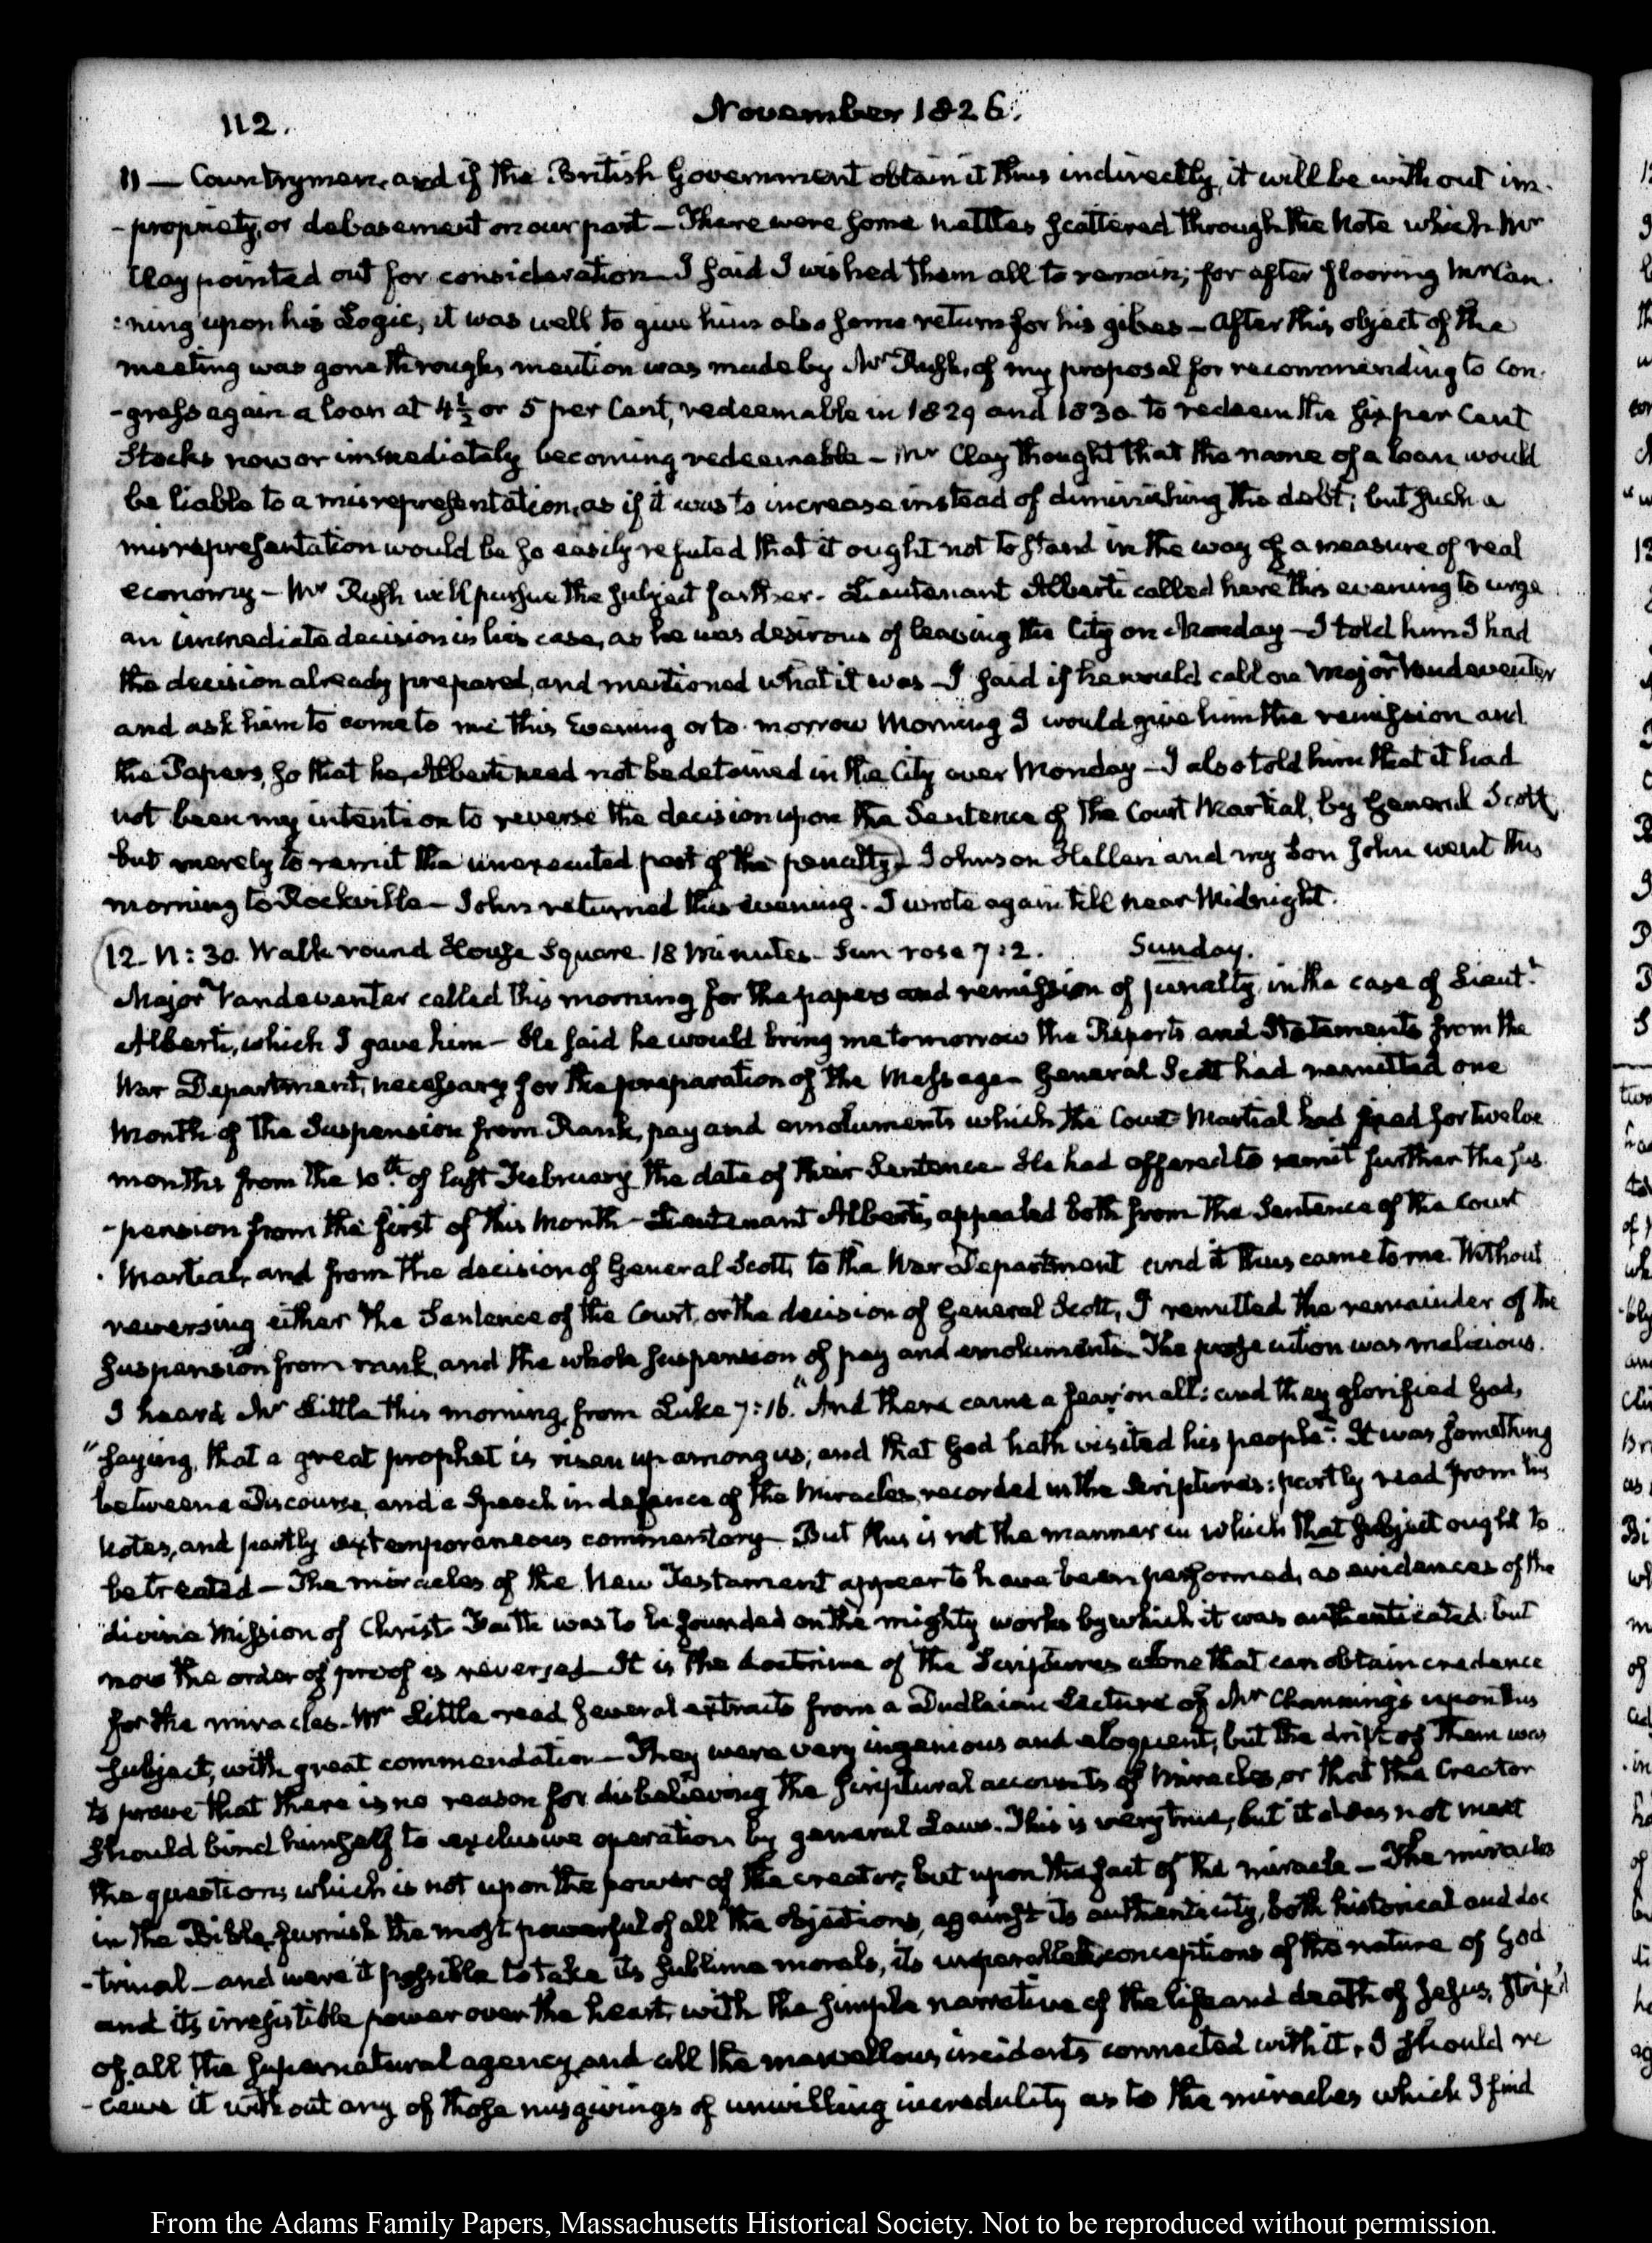 112.
November 1826.
11 — Countrymen, and if the British Government obtain it thus indirectly, it will be without im-
-propriety, or debasement on our part — There were some nettles scattered through the Note which Mr
Clay pointed out for consideration — I said I wished them all to remain; for after flooring Mr Can-
:ning upon his Logic, it was well to give him also some return for his gibes — After this object of the
meeting was gone through, mention was made by Mr Rush, of my proposal for recommending to Con-
-gress again a loan at 4½ or 5 per Cent, redeemable in 1829 and 1830 to redeem the six per Cent
Stocks now or immediately becoming redeemable — Mr Clay thought that the name of a loan would
be liable to a misrepresentation, as if it was to increase instead of diminishing the debt; but such a
misrepresentation would be so easily refuted that it ought not to stand in the way of a measure of real
economy — Mr Rush will pursue the subject further. Lieutenant Alberti called here this evening to urge
an immediate decision in his case, as he was desirous of leaving the City on Monday — I told him I had
the decision already prepared, and mentioned what it was — I said if he would call on Major Vandeventer
and ask him to come to me this Evening or to-morrow Morning I would give him the remission and
the Papers, so that he, Alberti need not be detained in the City over Monday — I also told him that it had
not been my intention to reverse the decision upon the Sentence of the Court Martial, by General Scott,
but merely to remit the unexecuted part of the penalty) Johnson Hellen and my Son John went this
morning to Rockville — John returned this evening. I wrote again till near Midnight.
12. VI: 30. Walk round House Square 18 Minutes. Sun rose 7:2. Sunday.
Major Vandeventer called this morning for the papers and remission of penalty in the case of Lieutt
Alberti, which I gave him — He said he would bring me tomorrow the Reports and Statements from the
War Department, necessary for the preparation of the Message — General Scott had remitted one
Month of the Suspension from Rank, pay and emoluments which the Court Martial had fixed for twelve
months from the 10th. of last February the date of their Sentence — He had offered to remit further the sus-
-pension from the first of this Month — Lieutenant Alberti, appealed both from the Sentence of the Court
Martial, and from the decision of General Scott, to the War Department and it thus came to me. Without
reversing either the Sentence of the Court, or the decision of General Scott, I remitted the remainder of the
suspension from rank, and the whole suspension of pay and emoluments. The prosecution was malicious.
I heard Mr Little this morning, from Luke 7:16. "And there came a fear on all: and they glorified God,
"saying, that a great prophet is risen up among us; and that God hath visited his people." It was something
between a Discourse, and a Speech in defence of the Miracles, recorded in the Scriptures: partly read from his
Notes, and partly extemporaneous commentary — But this is not the manner in which that subject ought to
be treated — The miracles of the New Testament appear to have been performed, as evidences of the
divine Mission of Christ. Faith was to be founded on the mighty works by which it was authenticated: but
now the order of proof is reversed — It is the doctrine of the Scriptures alone that can obtain credence
for the miracles. Mr Little read several extracts from a Dudleian Lecture of Mr Channing's upon this
subject, with great commendation — They were very ingenious and eloquent, but the drift of them was
to prove that there is no reason for disbelieving the scriptural accounts of Miracles, or that the Creator
should bind himself to exclusive operation by general Laws. This is very true, but it does not meet
the question; which is not upon the power of the creator; but upon the fact of the miracle — The miracles
in the Bible, furnish the most powerful of all the objections, against its authenticity, both historical and doc
-trinal — and were it possible to take its sublime morals, its unparalleled conceptions of the nature of God
and its irresistible power over the heart, with the simple narrative of the life and death of Jesus, strip'd
of all the supernatural agency, and all the marvellous incidents connected with it, I should re
-ceive it without any of those misgivings of unwilling incredulity as to the miracles which I find
From the Adams Family Papers, Massachusetts Historical Society. Not to be reproduced without permission.